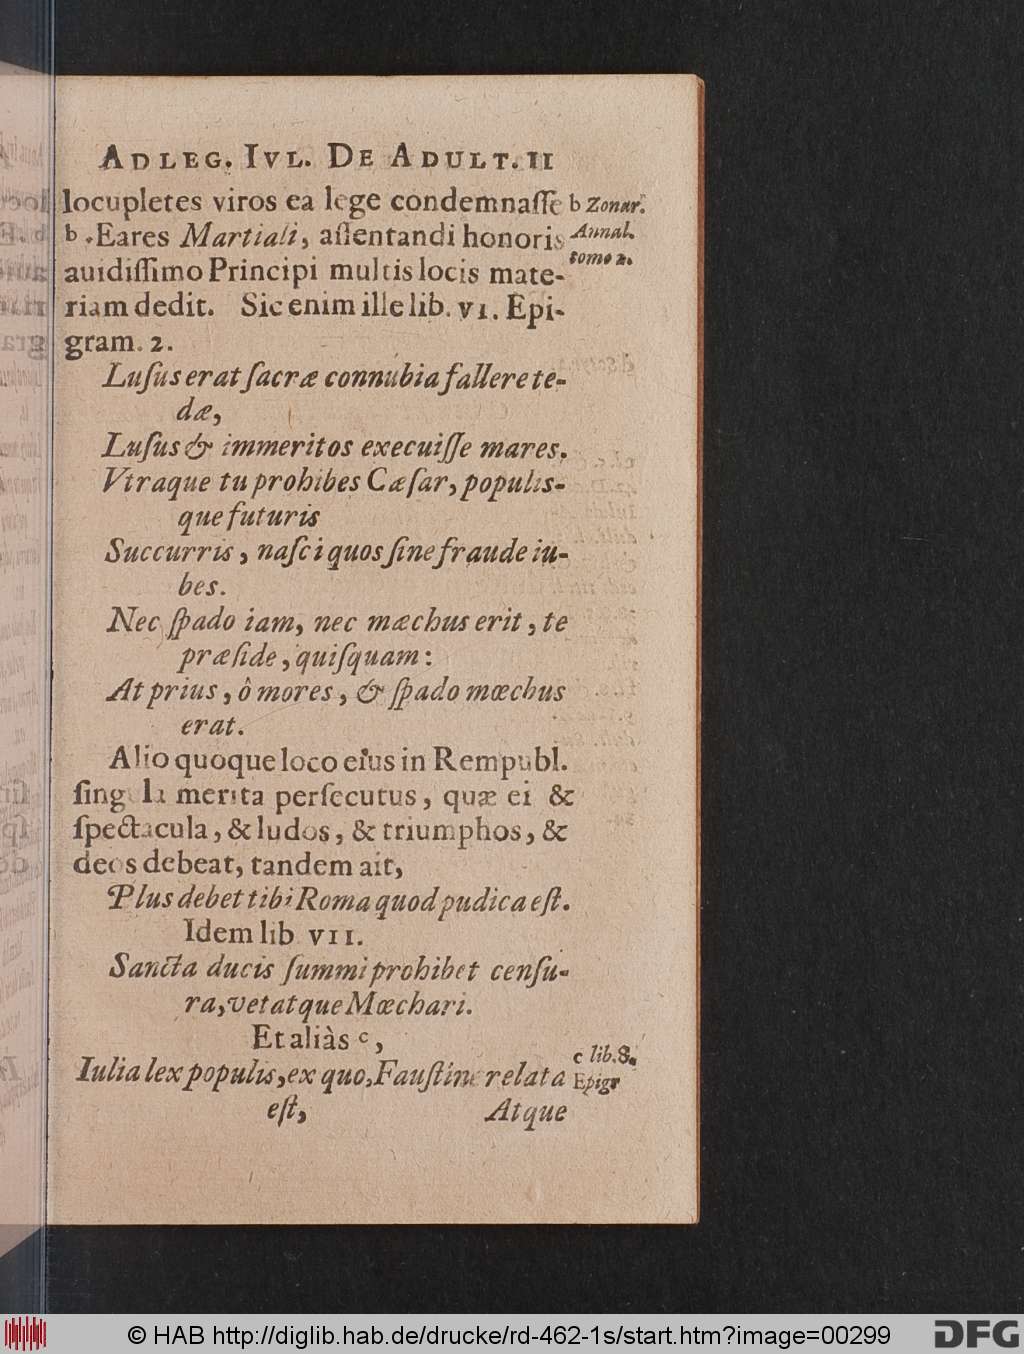 AD LEG. IVL. DE ADULT. II
locupletes viros ea lege condemnaſſe
b . Ea res Martiali, aſſentandi honoris
auidiſſimo Principi multis locis mate-
riam dedit. Sic enim ille lib. VI. Epi-
gram. 2.
Luſus erat ſacræ connubia fallere te-
dæ,
Luſus & immeritos execuiſſe mares.
Vtraque tu prohibes Cæſar, populis-
que futuris
Succurris, naſci quos ſine fraude iu-
bes.
Nec ſpado iam, nec mæchus erit, te
præſide, quiſquam:
At prius, ô mores, & ſpado mœchus
erat.
Alio quoque loco eius in Rempubl.
ſingula merita perſecutus, quæ ei &
ſpectacula, & ludos, & triumphos, &
deos debeat, tandem ait,
Plus debet tibi Roma quod pudica eſt.
Idem lib VII.
Sancta ducis ſummi prohibet cenſu-
ra, vetatque Mœchari.
Et aliàs c,
Iulia lex populis, ex quo, Fauſtine relata
eſt, Atque
b Zonar.
Annal.
tomo 2.
c lib. 8.
Epigr
© HAB http://diglib.hab.de/drucke/rd-462-1s/start.htm?image=00299
DFG